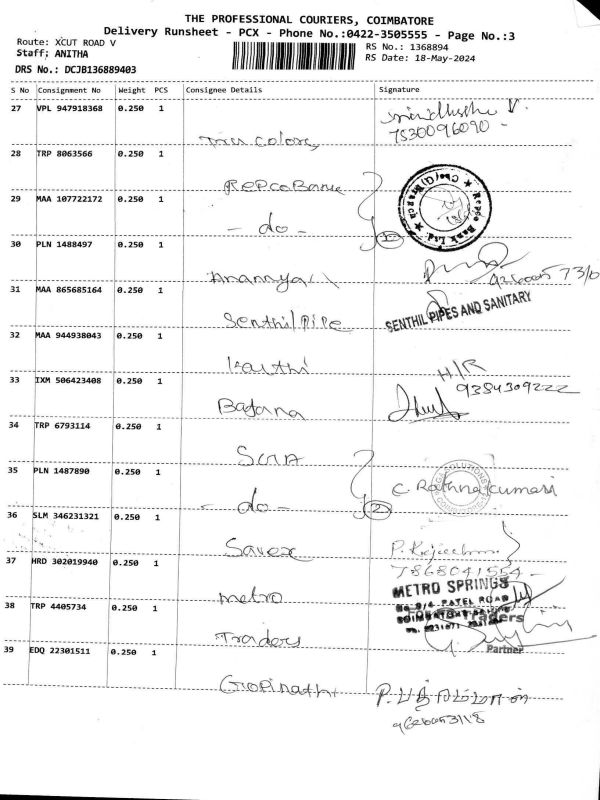 THE PROFESSIONAL COURIERS, COIMBATORE
Delivery Runsheet - PCX - Phone No.:0422-3505555 - Page No.:3
Route: XCUT ROAD V
RS No.: 1368894
Staff: ANITHA
RS Date: 18-May-2024
DRS No.: DCJB136889403
S No Consignment No Weight PCS Consignee Details Signature
27 VPL 947918368 0.250 1
7530096090 -
Tru colors
28 TRP 8063566 0.250 1
Repco Bank
29 MAA 107722172 0.250 1
- do -
Repco Bank Ltd.
30 PLN 1488497 0.250 1
Ananya
31 MAA 865685164 0.250 1
Senthil Pipe
SENTHIL PIPES AND SANITARY
32 MAA 944938043 0.250 1
H/R
33 IXM 506423408 0.250 1
9384309222
Bajana
34 TRP 6793114 0.250 1
35 PLN 1487890 0.250 1
C. Rathnakumari
- do -
2
36 SLM 346231321 0.250 1
Savex
37 HRD 302019940 0.250 1
7868041554 -
metro
METRO SPRINGS
PATEL ROAD
38 TRP 4405734 0.250 1
Traders
Traders
Partner
39 EDQ 22301511 0.250 1
Gopinath